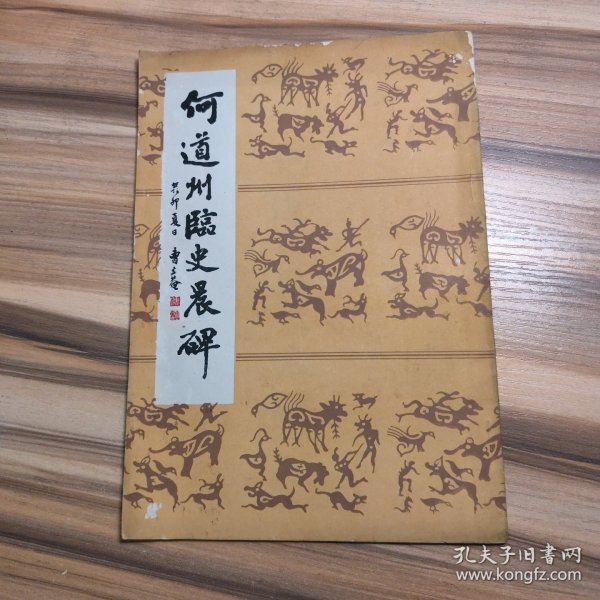 何道州臨史晨碑
癸卯夏日
孔夫子旧书网
www.kongfz.com